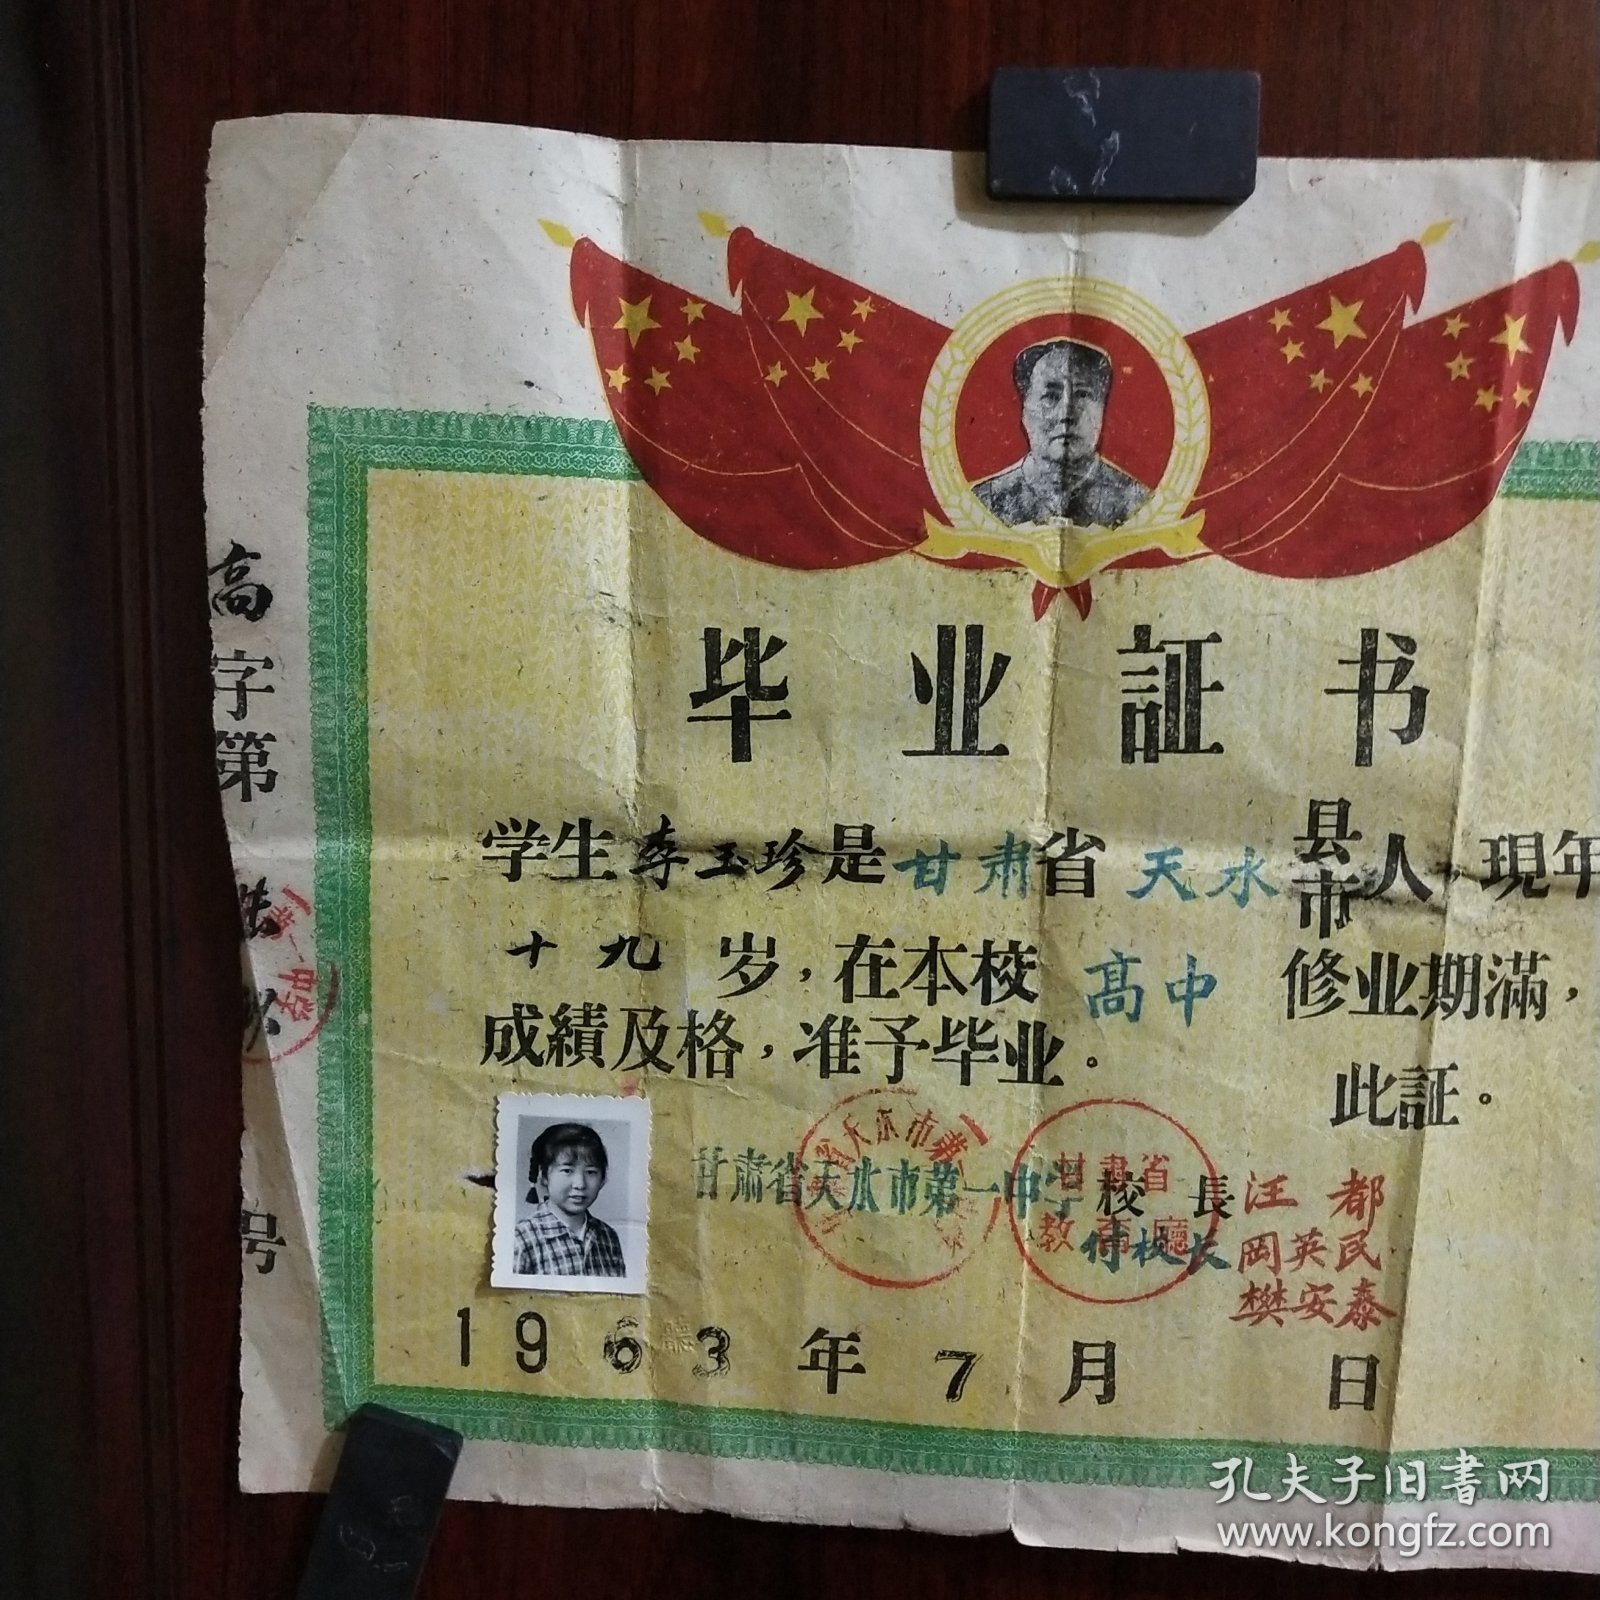 毕业証书
学生李玉珍是甘肃省天水县市人,現年
十九岁,在本校高中修业期滿,
成績及格,准予毕业。
此証。
甘肃省天水市第一中学校長汪都
付校长岡英民
樊安泰
甘肃省
教育廳
1963年7月日
高字第
号
孔夫子旧書网
www.kongfz.com